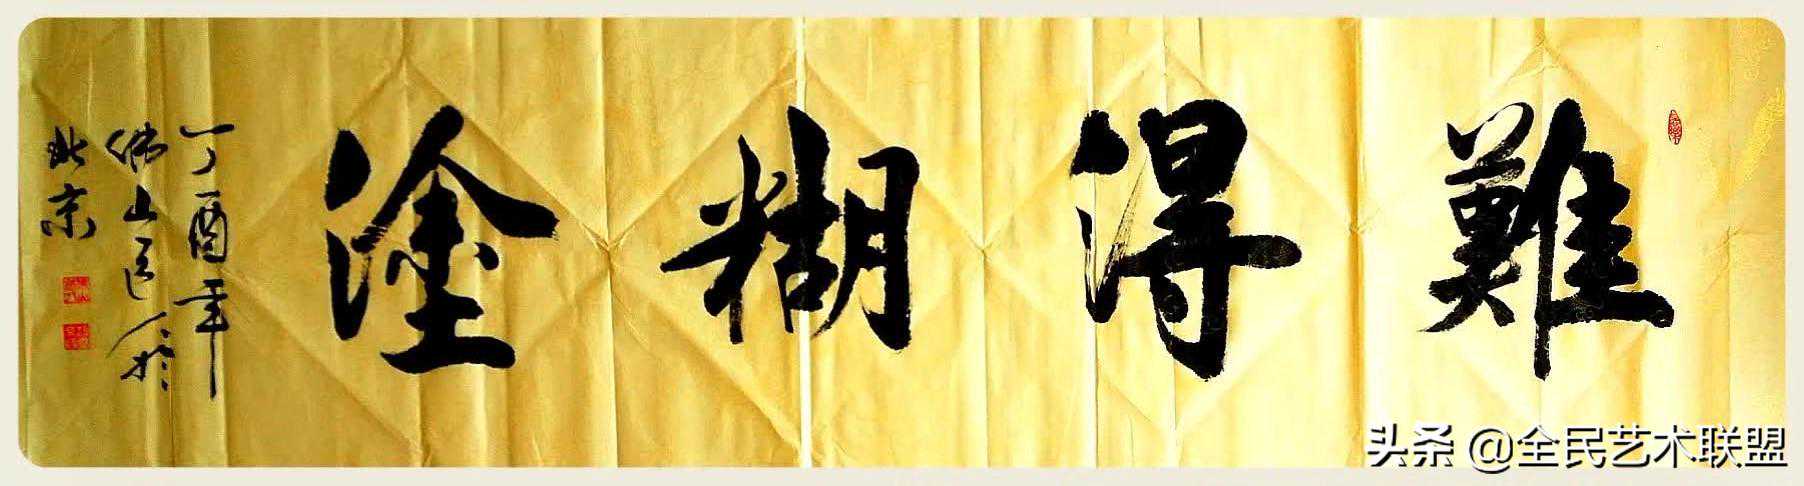 難得糊塗
丁酉年
佛山道人於
北京
头条 @全民艺术联盟